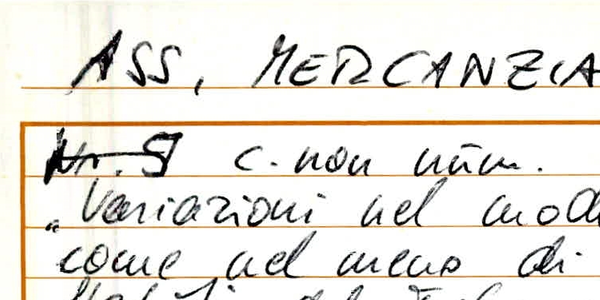 ASS, MERCANZIA
Nr. 5 c. non num.
"Variazioni nel mod
come nel meno di